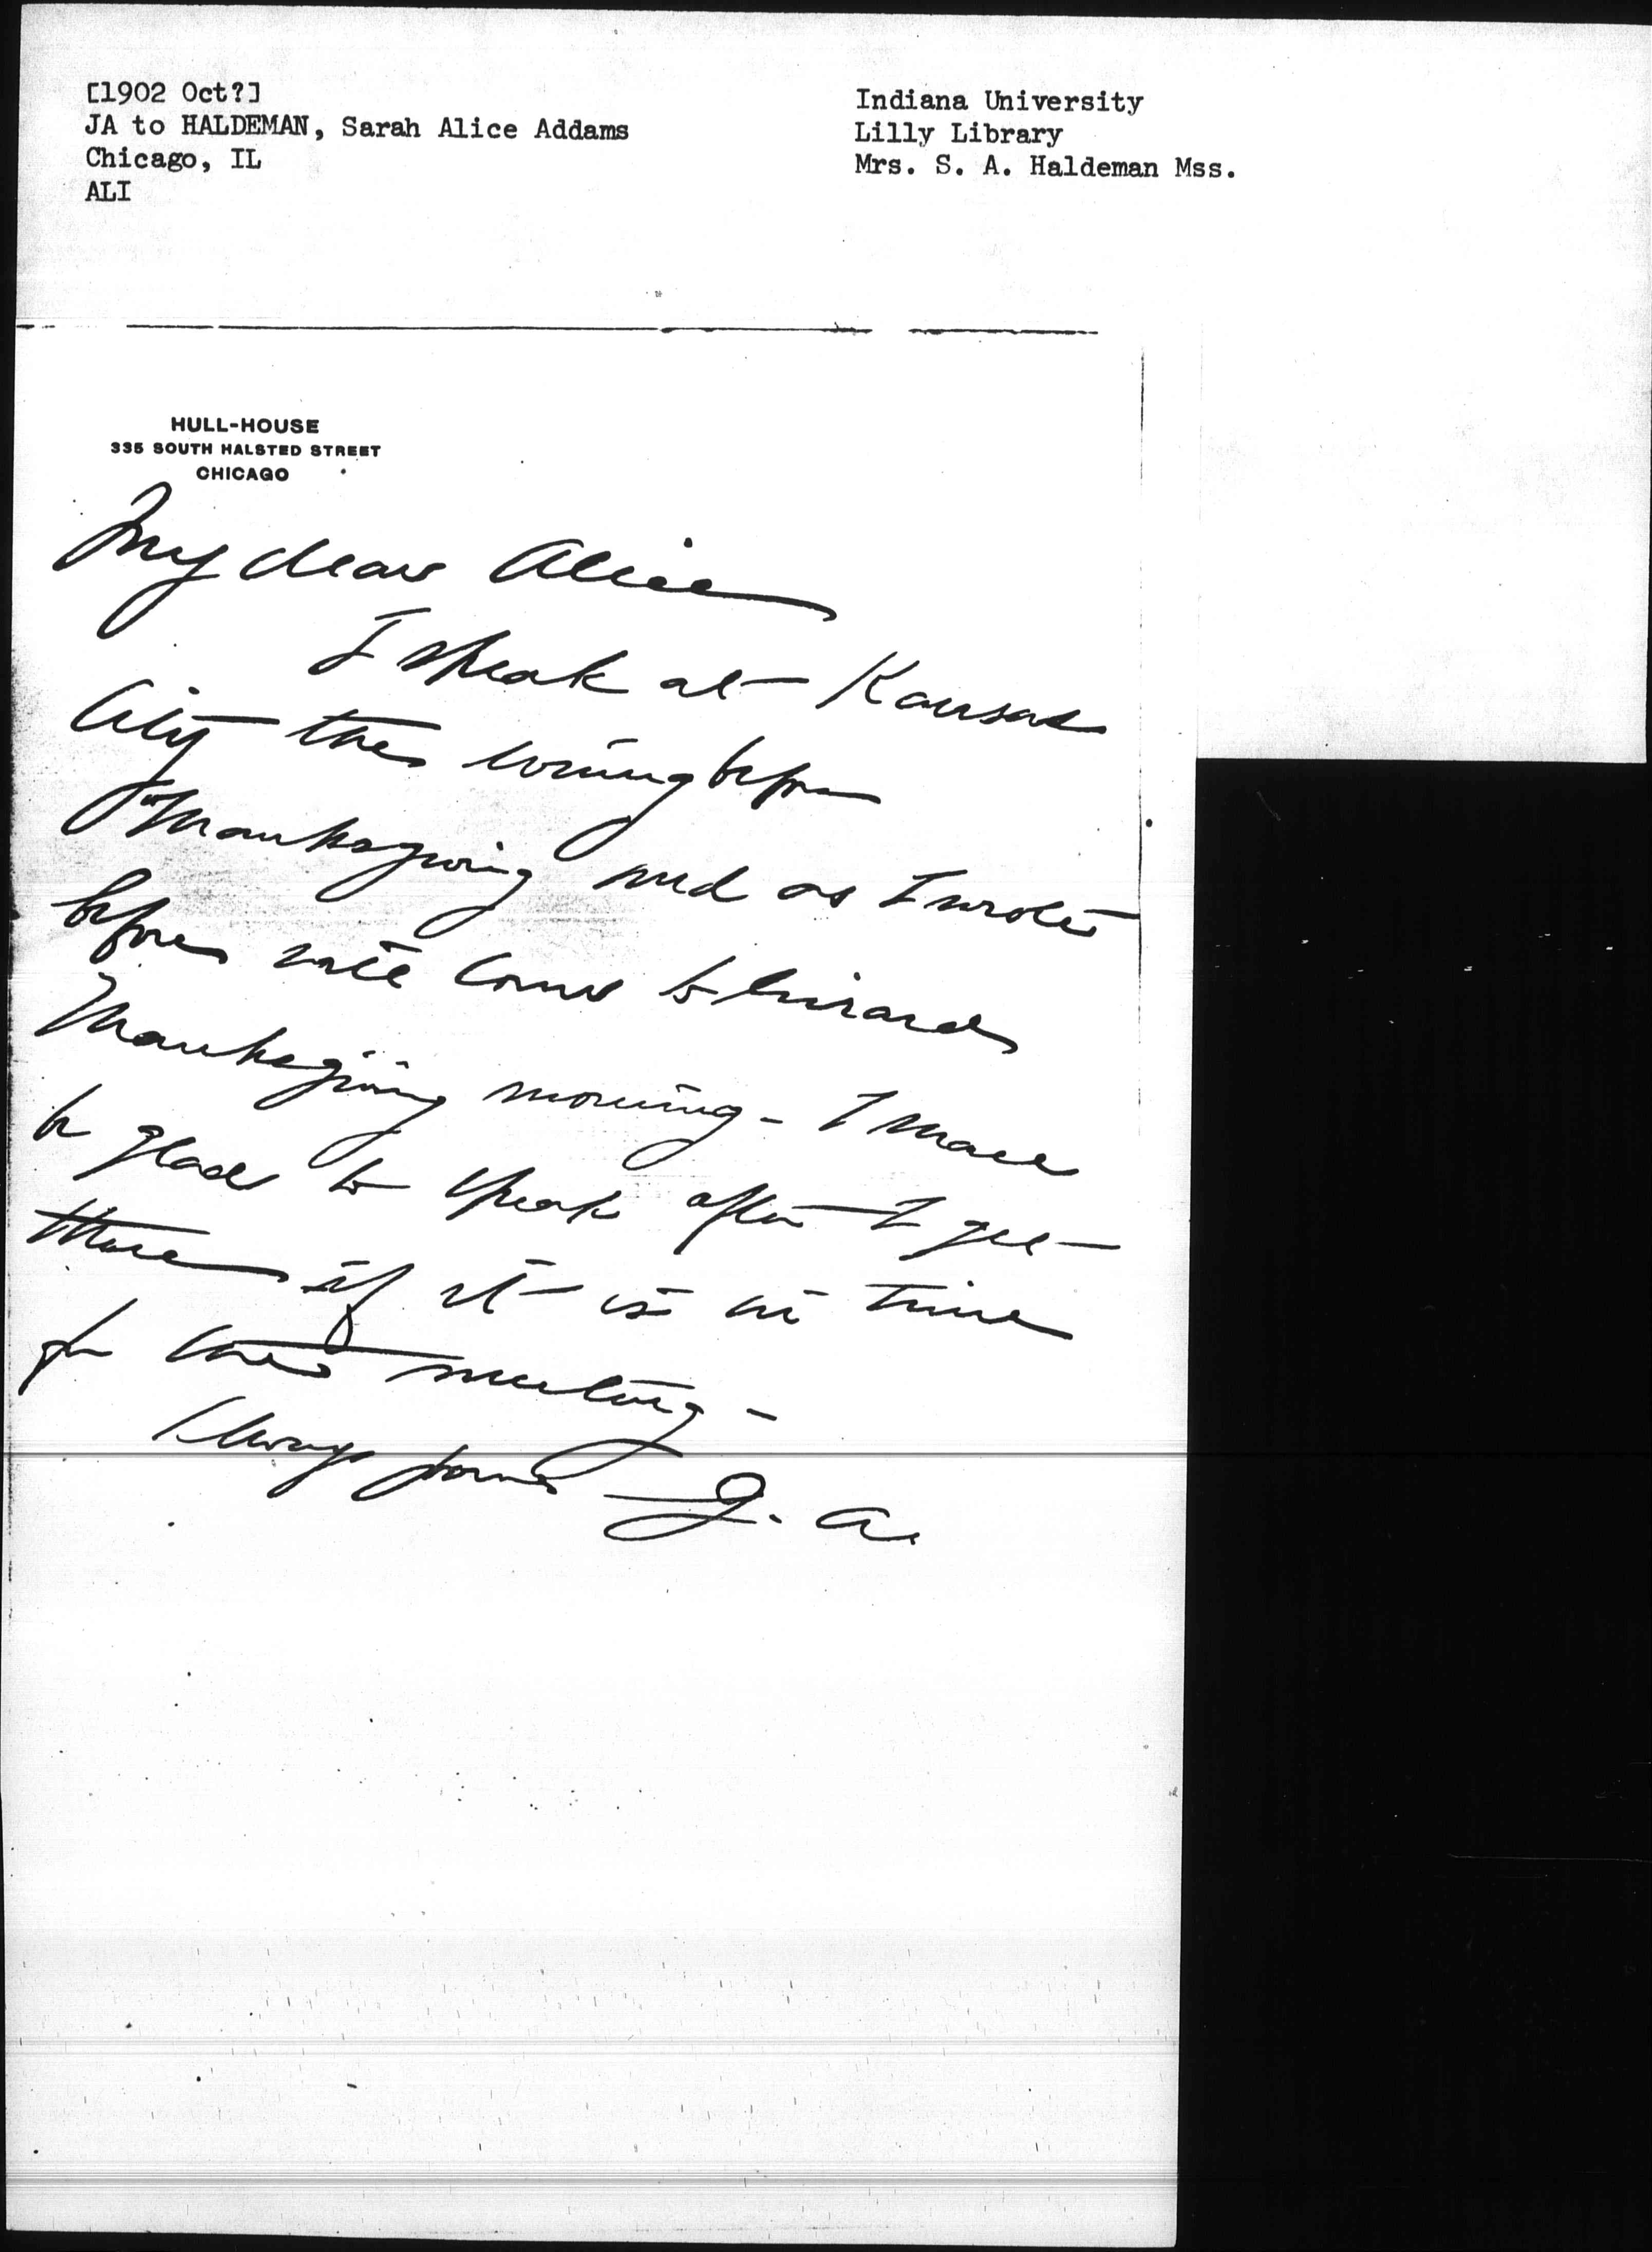 [1902 Oct?]
JA to HALDEMAN, Sarah Alice Addams
Chicago, IL
ALI
Indiana University
Lilly Library
Mrs. S. A. Haldeman Mss.
HULL-HOUSE
335 SOUTH HALSTED STREET
CHICAGO
My dear Alice
I speak at Kansas
City the evening before
Thanksgiving and as I wrote
before will come to Girard
Thanksgiving morning - I shall
be glad to speak after I get
there if it is in time
for the meeting -
Always yours J. A.